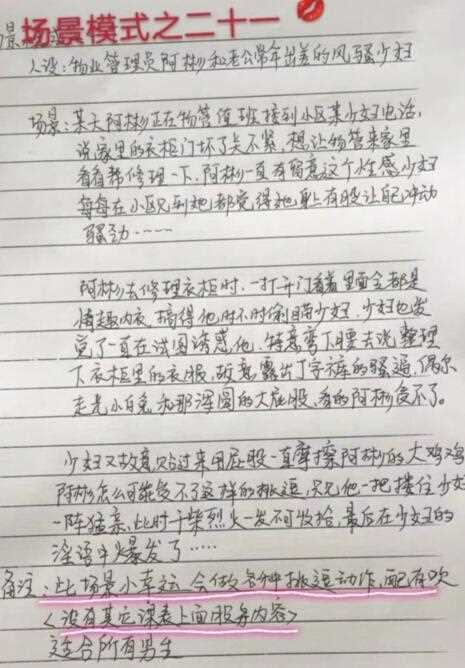 场景模式之二十一
人设：物业管理员阿彬和老公常年出差的风骚少妇
场景：某天阿彬正在物管值班接到小区某少妇电话，
说家里的衣柜门坏了关不紧，想让物管来家里
看看帮修理一下，阿彬一直有留意这个性感少妇
每每在小区见到她都觉得她身上有股让自己冲动
骚劲·····
阿彬去修理衣柜时，一打开门看着里面全都是
情趣内衣，搞得他时不时偷瞄少妇，少妇也发
觉了一直在试图诱惑他，特意弯下腰去说整理
下衣柜里的衣服，故意露出丁字裤的骚逼，偶尔
走光小白兔和那浑圆的大屁股，看的阿彬受不了。
少妇又故意贴过来用屁股一直摩擦阿彬的大鸡鸡
阿彬怎么可能受不了这样的挑逗，只见他一把搂住少女
一阵猛亲，此时干柴烈火一发不可收拾，最后在少妇的
淫语中爆发了·····
备注：此场景小幸运会做各种挑逗动作，配有吹
<没有其它课表上面服务内容>
适合所有男生